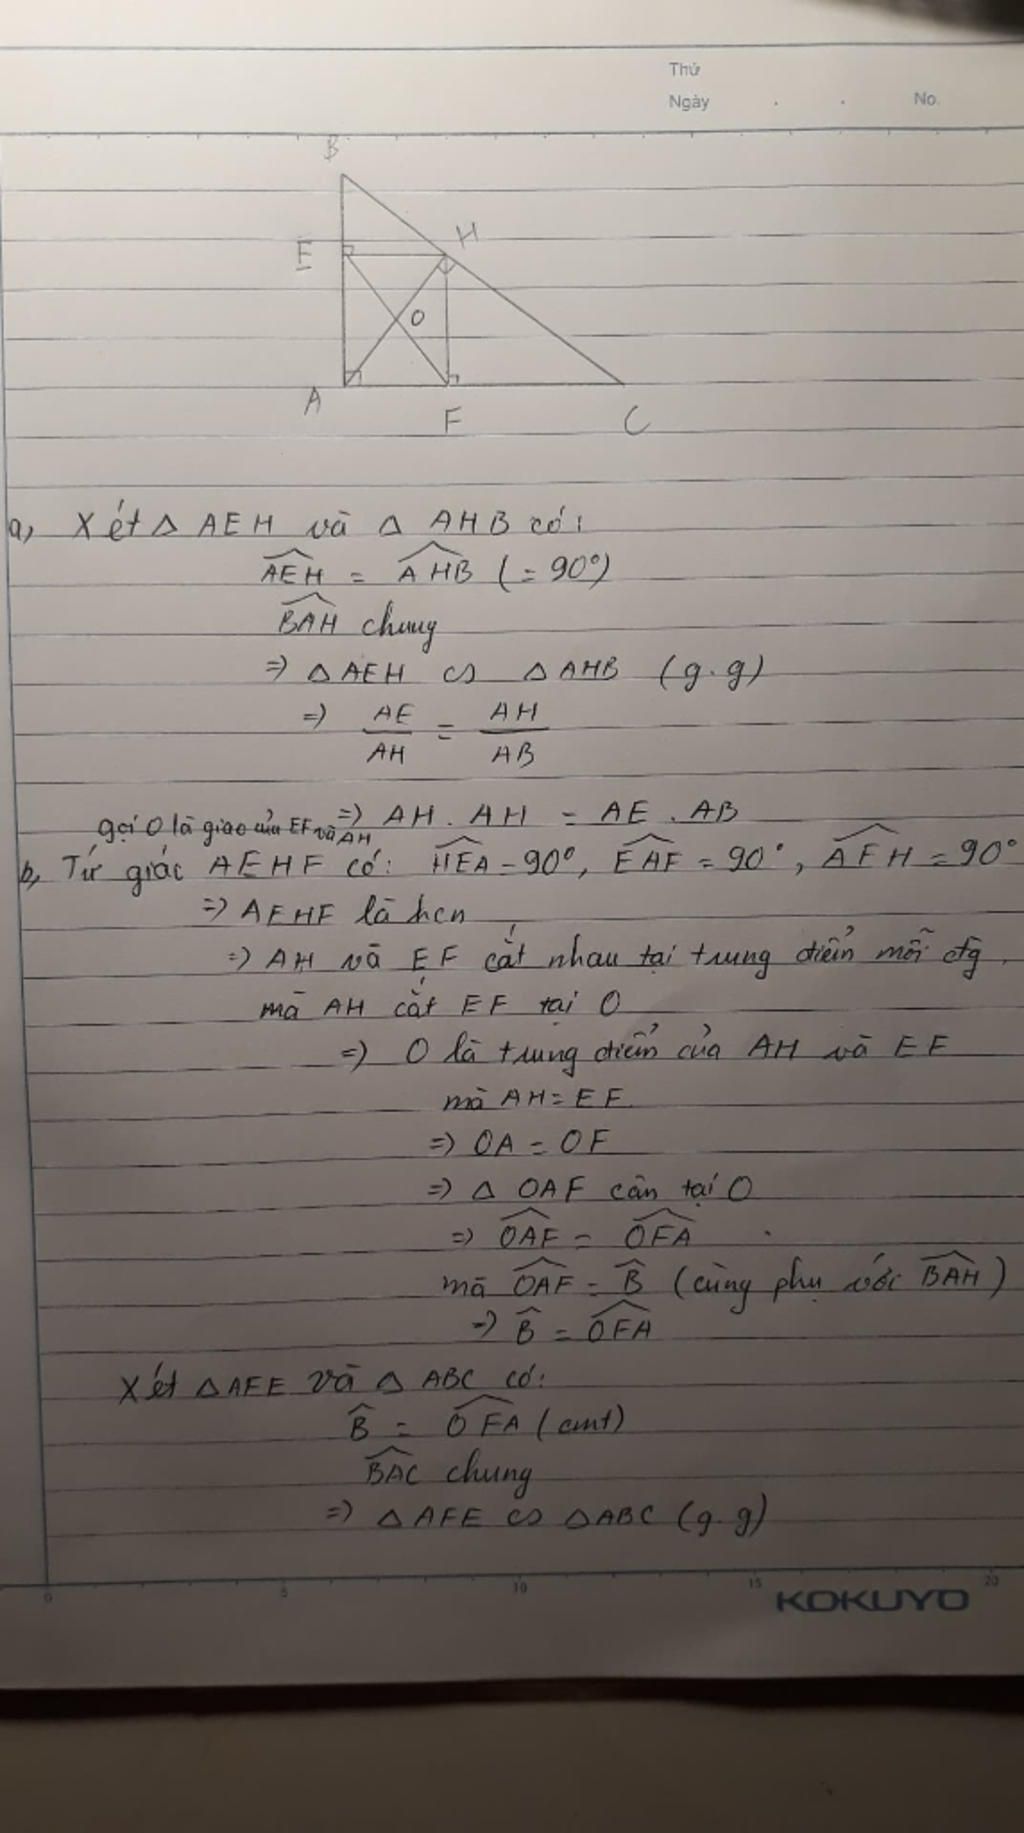 Thứ
Ngày . . No.
B
E
H
O
A
F
C
a, Xét △ AEH và △ AHB có:
$\widehat{AEH}$ = $\widehat{AHB}$ (= 90°)
$\widehat{BAH}$ chung
=> △ AEH ∽ △ AHB (g.g)
=> $\frac{AE}{AH}$ = $\frac{AH}{AB}$
=> AH . AH = AE . AB
gọi O là giao của EF và AH
b, Tứ giác AEHF có: $\widehat{HEA}$ = 90°, $\widehat{EAF}$ = 90°, $\widehat{AFH}$ = 90°
=> AEHF là hcn
=> AH và EF cắt nhau tại trung điểm mỗi đg
mà AH cắt EF tại O
=> O là trung điểm của AH và EF
mà AH = EF
=> OA = OF
=> △ OAF cân tại O
=> $\widehat{OAF}$ = $\widehat{OFA}$
mà $\widehat{OAF}$ = $\widehat{B}$ (cùng phụ với $\widehat{BAH}$)
=> $\widehat{B}$ = $\widehat{OFA}$
Xét △ AFE và △ ABC có:
$\widehat{B}$ = $\widehat{OFA}$ (cmt)
$\widehat{BAC}$ chung
=> △ AFE ∽ △ ABC (g.g)
0 5 10 15 20
KOKUYO